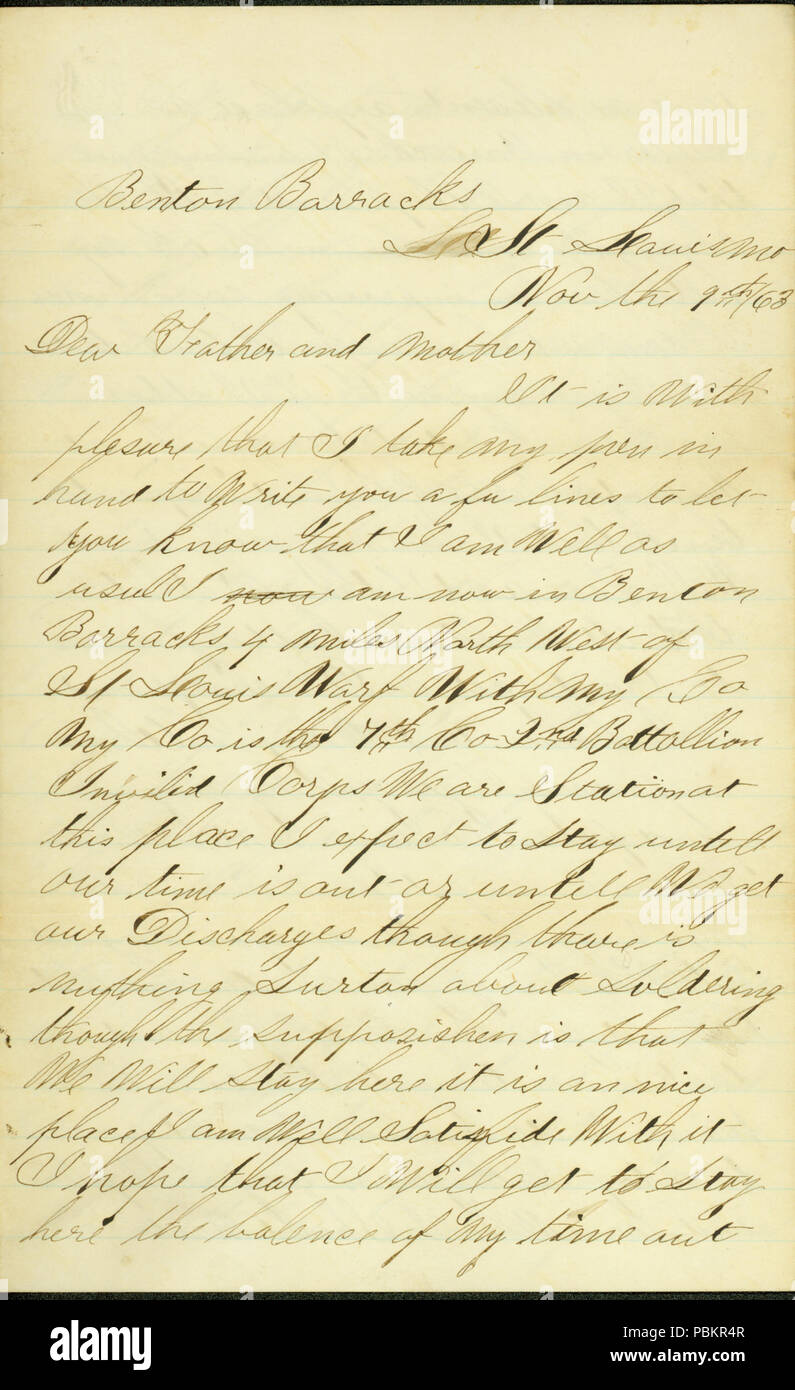 Benton Barracks
St Louis Mo
Nov the 9th/63
Dear Father and Mother
It is With
plesure that I take my pen in
hand to Write you a fu lines to let
you know that I am Well as
usul I now am now in Benton
Barracks 4 miles North West of
St Louis Warf With My Co
My Co is the 7th Co 2nd Battollion
Invilid Corps We are Station at
this place I expect to Stay untell
our time is out or untell We get
our Discharges though thare is
nuthing Surton about Soldering
though the supposishen is that
We Will Stay here it is an nice
place I am Well Satisfide With it
I hope that I Will get to Stay
here the balence of My time out
alamy
alamy
Image ID: PBKR4R
www.alamy.com